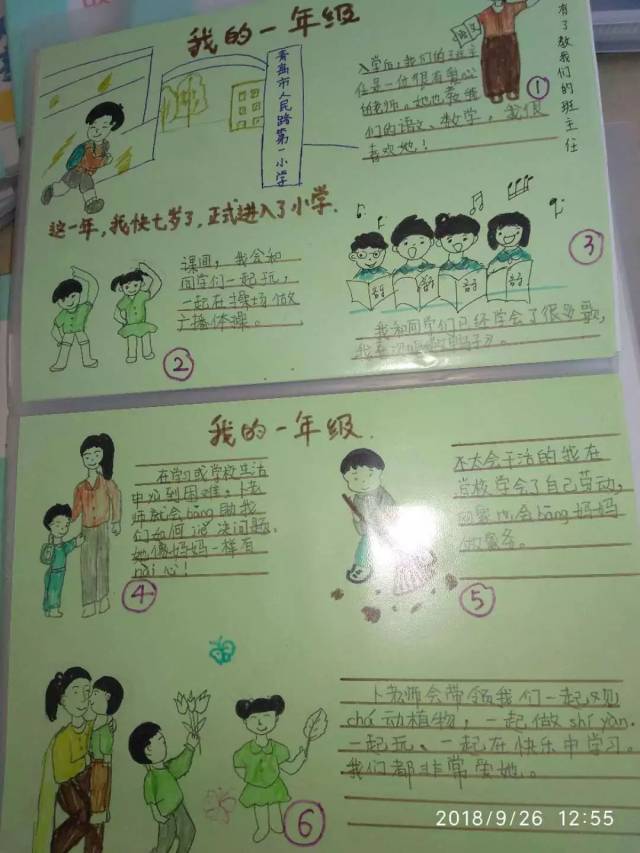 我的一年级
青岛市人民路第一小学
有了教我们的班主任
语文
入学后,我们的班主
任是一位很有爱心
的老师,她也教我
们的语文、数学,我很
喜欢她!
①
这一年,我快七岁了,正式进入了小学.
课间,我会和
同学们一起玩,
一起在操场做
广播体操。
②
③
音乐
音乐
音乐
音乐
我和同学们已经学会了很多歌,
我的一年级.
在学习或学校生活
中遇到困难,卜老
师就会bāng助我
们如何解决问题.
她像妈妈一样有
nài心!
④
不太会干活的我在
学校学会了自己劳动,
回家也会bāng妈妈
做家务。
⑤
卜老师会带领我们一起观
chá动植物,一起做shí yàn.
一起玩、一起在快乐中学习。
我们都非常爱她。
⑥
2018/9/26 12:55